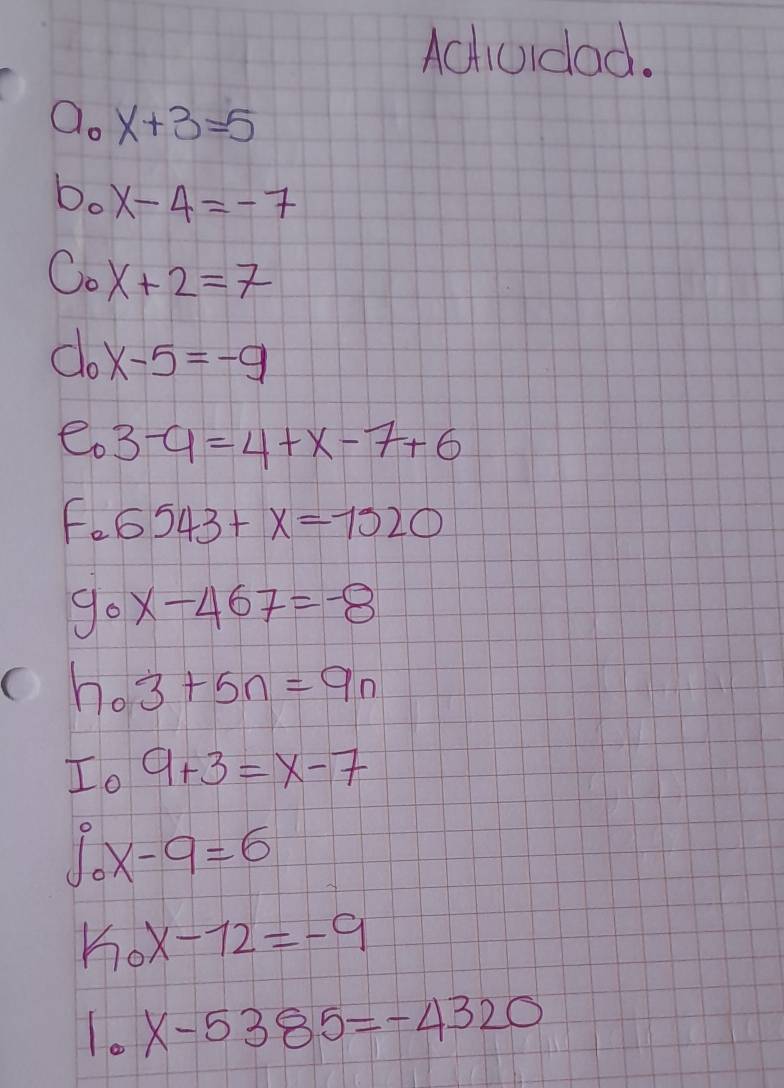 Actividad.
a. x+3=5
b. x-4=-7
c. x+2=7
d. x-5=-9
e. 3-9=4+x-7+6
F. 6543+x=1520
g. x-467=-8
h. 3+5n=9n
I. 9+3=x-7
j. x-9=6
K. x-12=-9
l. x-5385=-4320